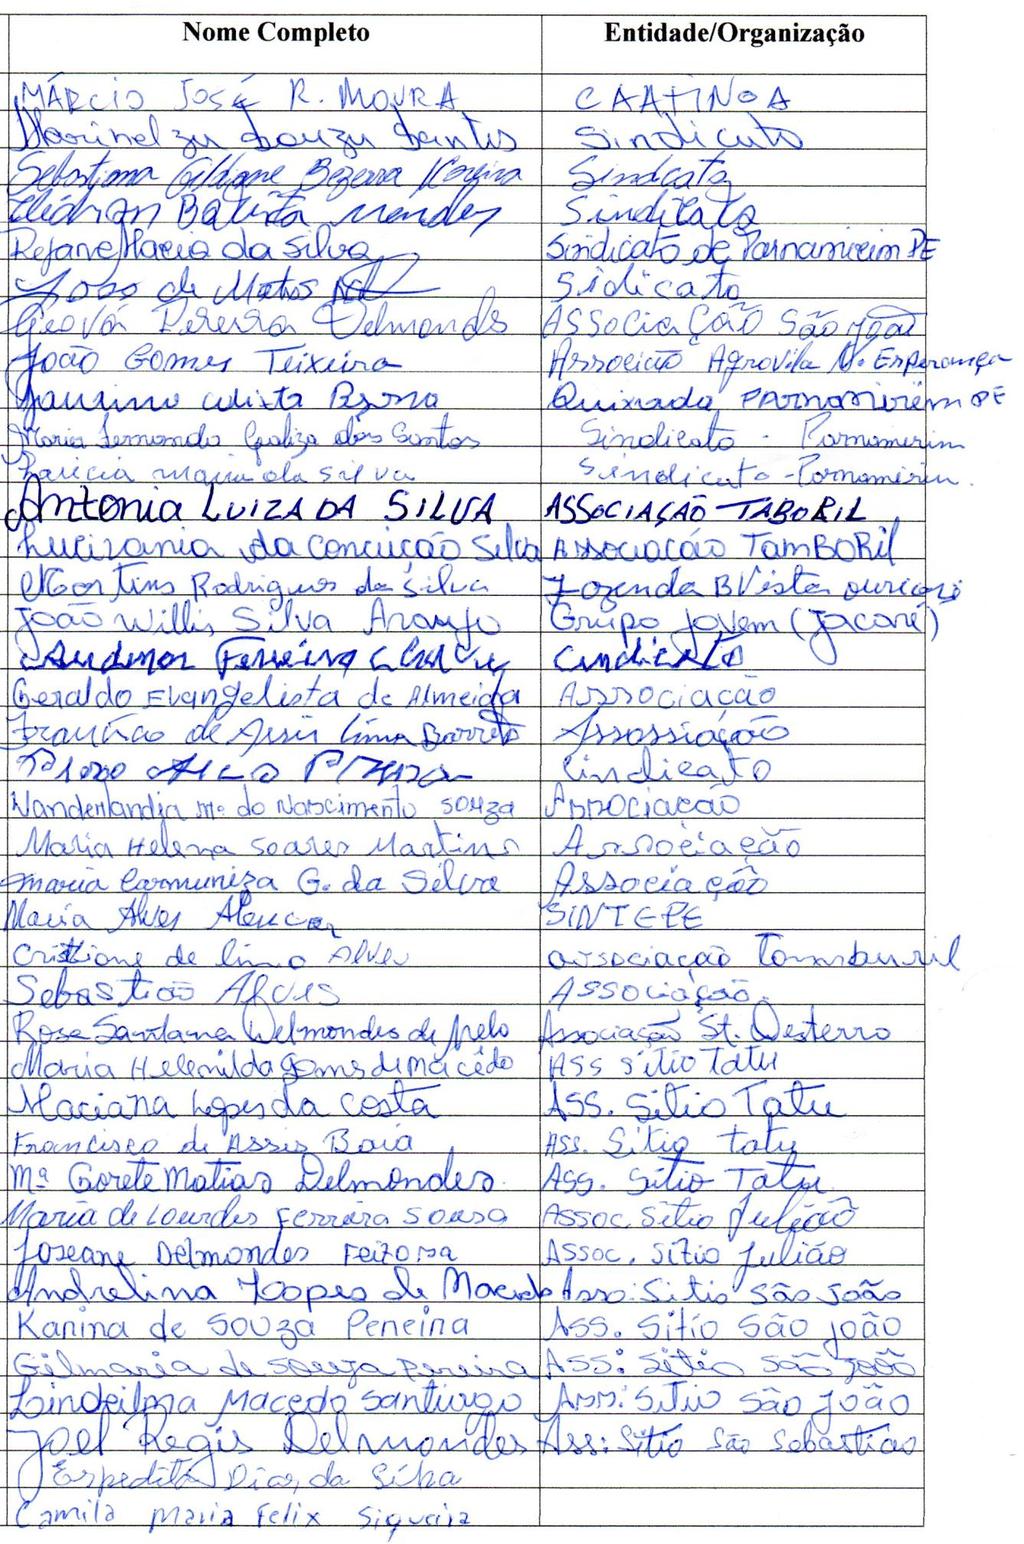 Nome Completo Entidade/Organização
MÁRCIO JOSÉ R. MOURA CAATINGA
Marinelzu Souzu Santis Sindicuto
Sebastiana Gildane Bezerra Pereira Sindcato
Batista Mendes Sindicato
Rejane Maria da Silva Sindicato de Parnamirim PE
João de Matos Sidicato
Geová Pereira Delmonds ASSOCIAÇÃO São João
João Gomes Teixeira Associção Agrovila N. Esperança
Quixada PARNAMIRIEM PE
Maria Fernanda Galiza dos Santos Sindicato - Parnamirim
Maria da Silva Sindicato - Parnamirim.
Antonia LUIZA DA SILVA ASSOCIAÇÃO TABORIL
Lucivania da Conceição Silva ASSOCIAÇÃO TAMBORIL
Martins Rodrigues da Silva Fazenda B Vista ouricuri
João Willis Silva Araujo Grupo Jovem (Jacaré)
Ferreira Cindicato
Geraldo Evangelista de Almeida Associação
Francisco de Assis Lima Barreto Assossiação
Cindicato
Wanderlandia Mª do Nascimento Souza Associação
Maria Helena Soares Martins Associação
Maria Carmuniza G. da Silva Associação
Maria Alves Alencar SINTEPE
Cristiane de Lima Alves associação Tamburil
Sebastião Alves Associação.
Rosa Santana Delmondes de Melo Associação St. Desterro
Maria Helenilda Gomes de Macêdo ASS Sítio Tatu
Maciana Lopes da Costa ASS. Sitio Tatu
Francisco de Assis Baia ASS. Sitio tatu
Mª Gorete Matias Delmondes. Ass. Sitio Tatu
Maria de Lourdes Ferreira Sousa Assoc. Sitio Julião
Joseane Delmondes Feitosa Assoc. Sítio Julião
Andrelina Lopes de Macedo Asso. Sitio São João
Karina de Souza Pereira Ass. Sítio São João
Gilmaria de Souza Pereira Ass: Sitio São João
Lindeilma Macedo Santiago Ass: Sitio São João
Joel Regis Delmondes Ass: Sitio São Sebastião
Espedita Dias da Silva
Camila Maria Felix Siqueira